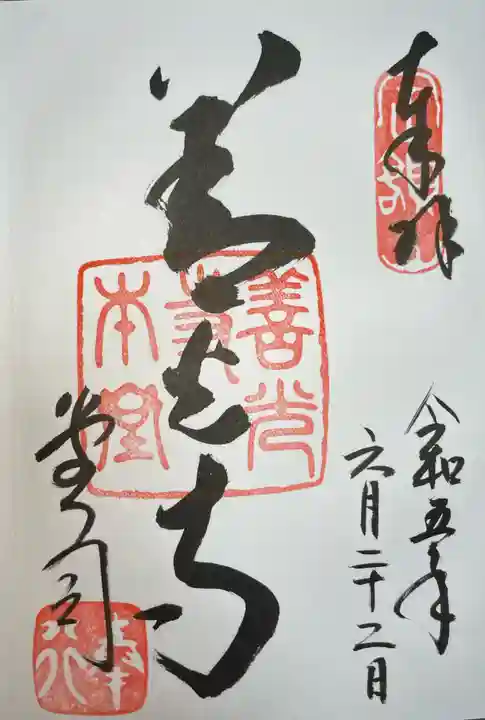 奉拝
令和五年
六月二十二日
善光寺
善光寺本堂
堂司